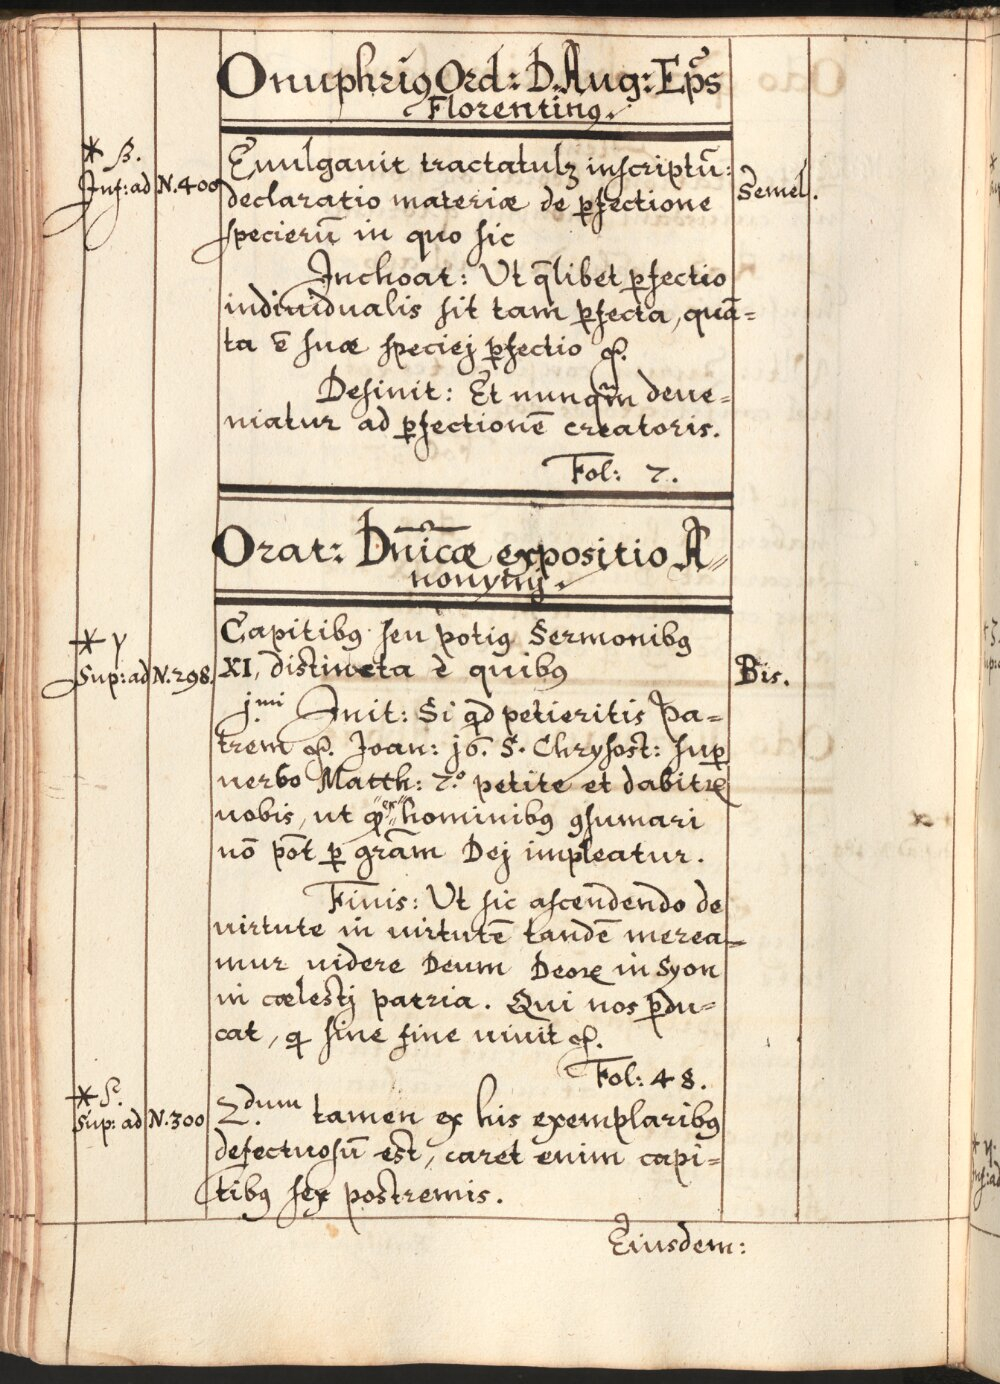 Onuphriꝯ Ord: D. Aug: Epꝰs
Florentinꝯ.
* β.
Inf: ad N. 400
Euulgauit tractatulꝫ inscriptū:
declaratio materiæ de ꝑfectione
specierū in quo sic
Semel.
Inchoat: Ut q̄libet ꝑfectio
indiuidualis sit tam ꝑfecta, quā=
ta ē suæ speciej ꝑfectio &.
Definit: Et nunqm̄ deue=
niatur ad ꝑfectionē creatoris.
Fol: 7.
Orat: Dn̄icæ expositio A=
nonymj.
* γ
Sup: ad N. 298.
Capitibꝯ seu potiꝯ Sermonibꝯ
XI, distincta è quibꝯ
Bis.
j.mi Init: Si qd petieritis Pa=
trem &. Joan: j6. S. Chrysost: suꝑ
uerbo Matth: 7.º petite et dabitꝛ
uobis, ut q̄ "ex" hominibꝯ ꝯsumari
nō pōt ꝑ grām Dej impleatur.
Finis: Ut sic ascendendo de
uirtute in uirtutē tandē merea=
mur uidere Deum Deoꝝ in Syon
in cælestj patria. Qui nos ꝑdu=
cat, q sine fine uiuit &.
Fol: 48.
* δ.
Sup: ad N. 300
2.dum tamen ex his exemplaribꝯ
defectuosū est, caret enim capi=
tibꝯ sex postremis.
Eiusdem: